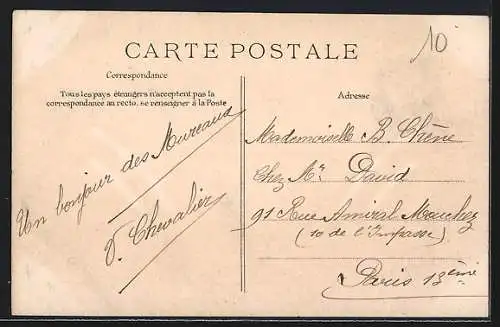 10
CARTE POSTALE
Correspondance
Tous les pays étrangers n'acceptent pas la
correspondance au recto, se renseigner à la Poste
Un bonjour des Mureaux
V. Chevalier
Adresse
Mademoiselle B. Chêne
Chez Mr David
91 Rue Amiral Mouchez
(10 de l'Impasse)
Paris 13ème